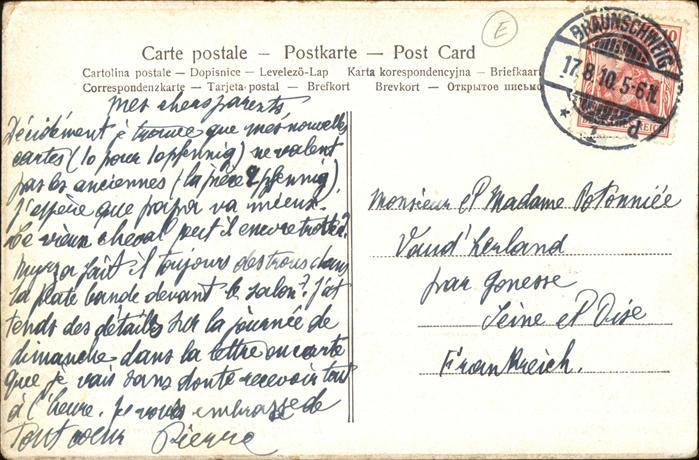 E
Carte postale – Postkarte – Post Card
Cartolina postale — Dopisnice — Levelező-Lap Karta korespondencyjna — Briefkaart
Correspondenzkarte — Tarjeta postal — Brefkort Brevkort — Открытое письмо
BRAUNSCHWEIG
17.8.10.5-6N.
* 1 d
REICH
mes chers parents
Décidément je trouve que mes nouvelles
cartes (10 pour 10 pfennig) ne valent
pas les anciennes (la pièce 2 pfennig).
J'espère que papa va mieux.
Le vieux cheval peut il encore trotter?
fait il toujours des trous dans
la plate bande devant le salon? J'at
tends des détails sur la journée de
dimanche dans la lettre ou carte
que je vais sans doute recevoir tout
à l'heure. Je vous embrasse de
tout coeur Pierre
Monsieur et Madame Potonniée
Vaud'herland
par Gonesse
Seine et Oise
Frankreich.